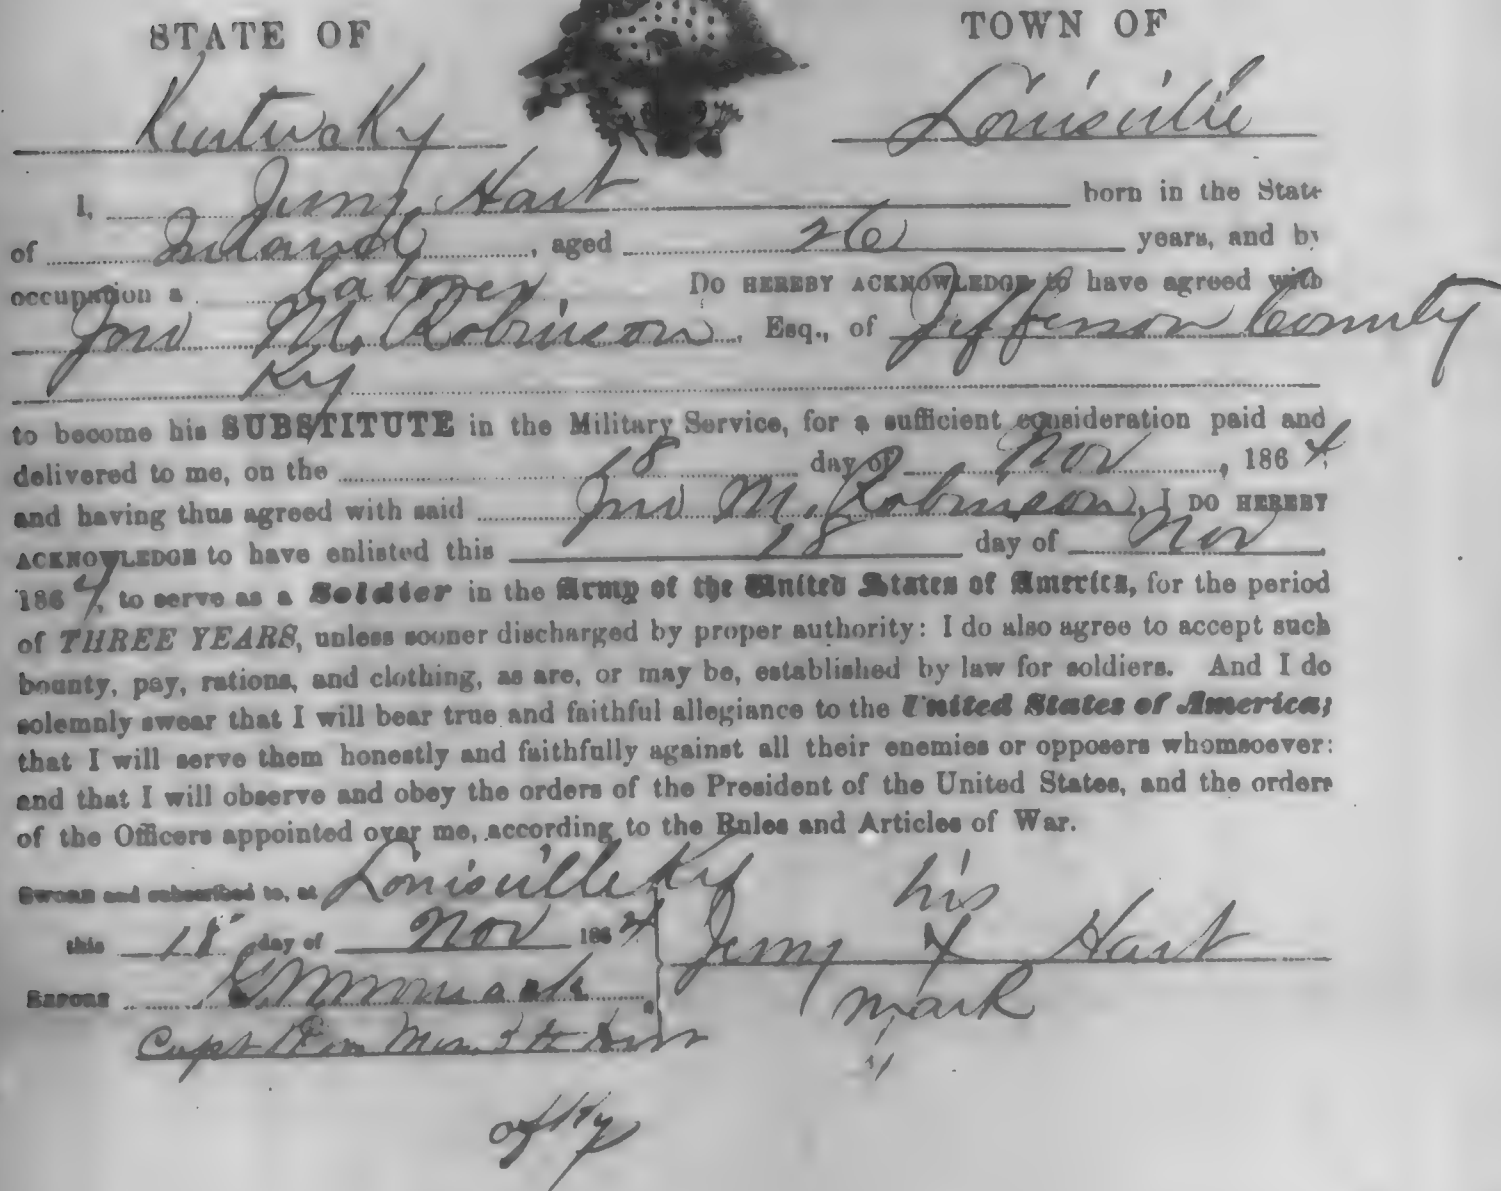 STATE OF TOWN OF
Kentucky Louisville
I, Jerry Hart born in the State
of Ireland, aged 26 years, and by
occupation a laborer Do HEREBY ACKNOWLEDGE to have agreed with
Jno M. Robinson, Esq., of Jefferson County
Ky
to become his SUBSTITUTE in the Military Service, for a sufficient consideration paid and
delivered to me, on the 18 day of Nov, 1864,
and having thus agreed with said Jno M. Robinson, I DO HEREBY
ACKNOWLEDGE to have enlisted this 18 day of Nov
1864, to serve as a Soldier in the Army of the United States of America, for the period
of THREE YEARS, unless sooner discharged by proper authority: I do also agree to accept such
bounty, pay, rations, and clothing, as are, or may be, established by law for soldiers. And I do
solemnly swear that I will bear true and faithful allegiance to the United States of America;
that I will serve them honestly and faithfully against all their enemies or opposers whomsoever:
and that I will observe and obey the orders of the President of the United States, and the orders
of the Officers appointed over me, according to the Rules and Articles of War.
Sworn and subscribed to, at Louisville Ky his
this 18" day of Nov 1864 Jerry X Hart
BEFORE mark
Capt Dist
of Ky